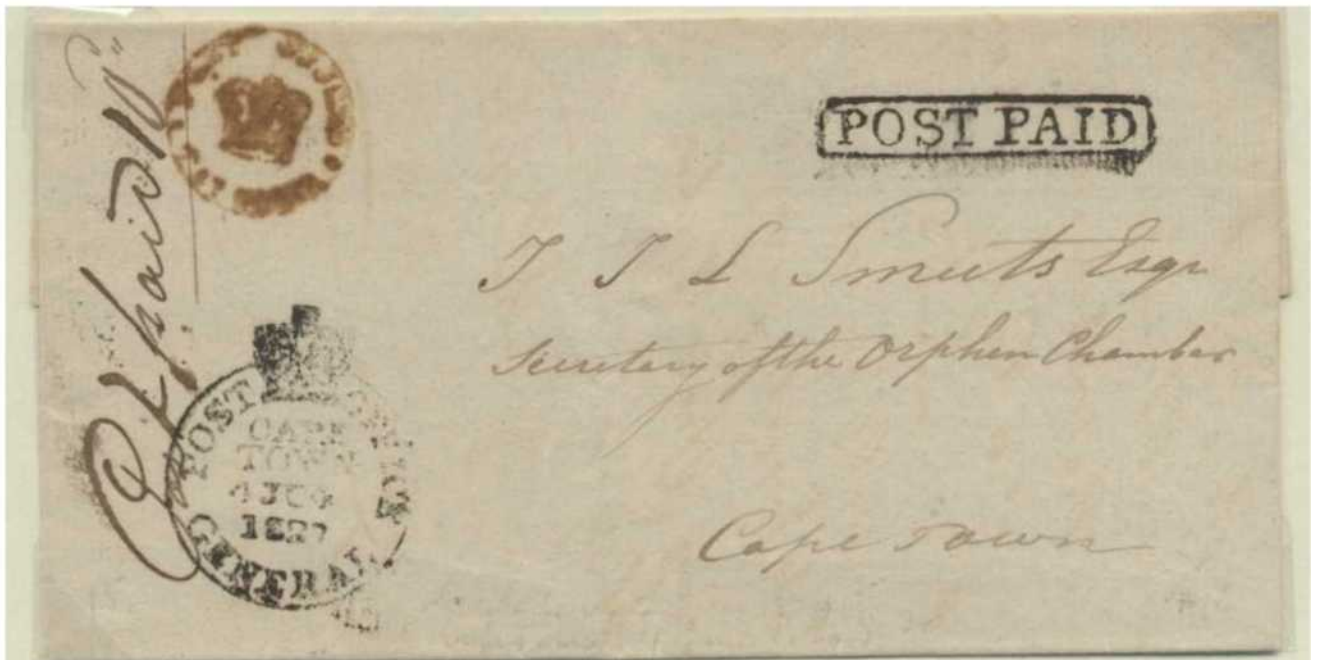 POST PAID
paid
J J L Smuts Esqr
Secretary of the Orphen Chamber
Cape Town
GENERAL POST OFFICE
CAPE
TOWN
1827